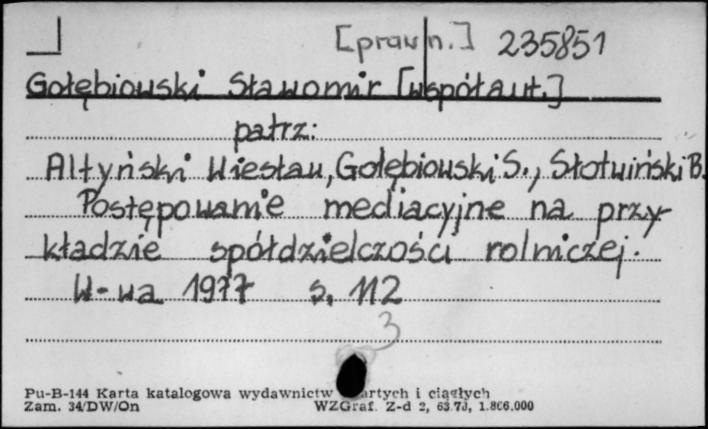 [prawn.] 235851
Gołębiowski Sławomir [współaut.]
patrz:
Ałtyński Wiesław, Gołębiowski S., Słotwiński B.
Postępowanie mediacyjne na przy-
kładzie spółdzielczości rolniczej.
W-wa 1977 s. 112
3
Pu-B-144 Karta katalogowa wydawnictw i ciągłych
Zam. 34/DW/On WZGraf. Z-d 2,